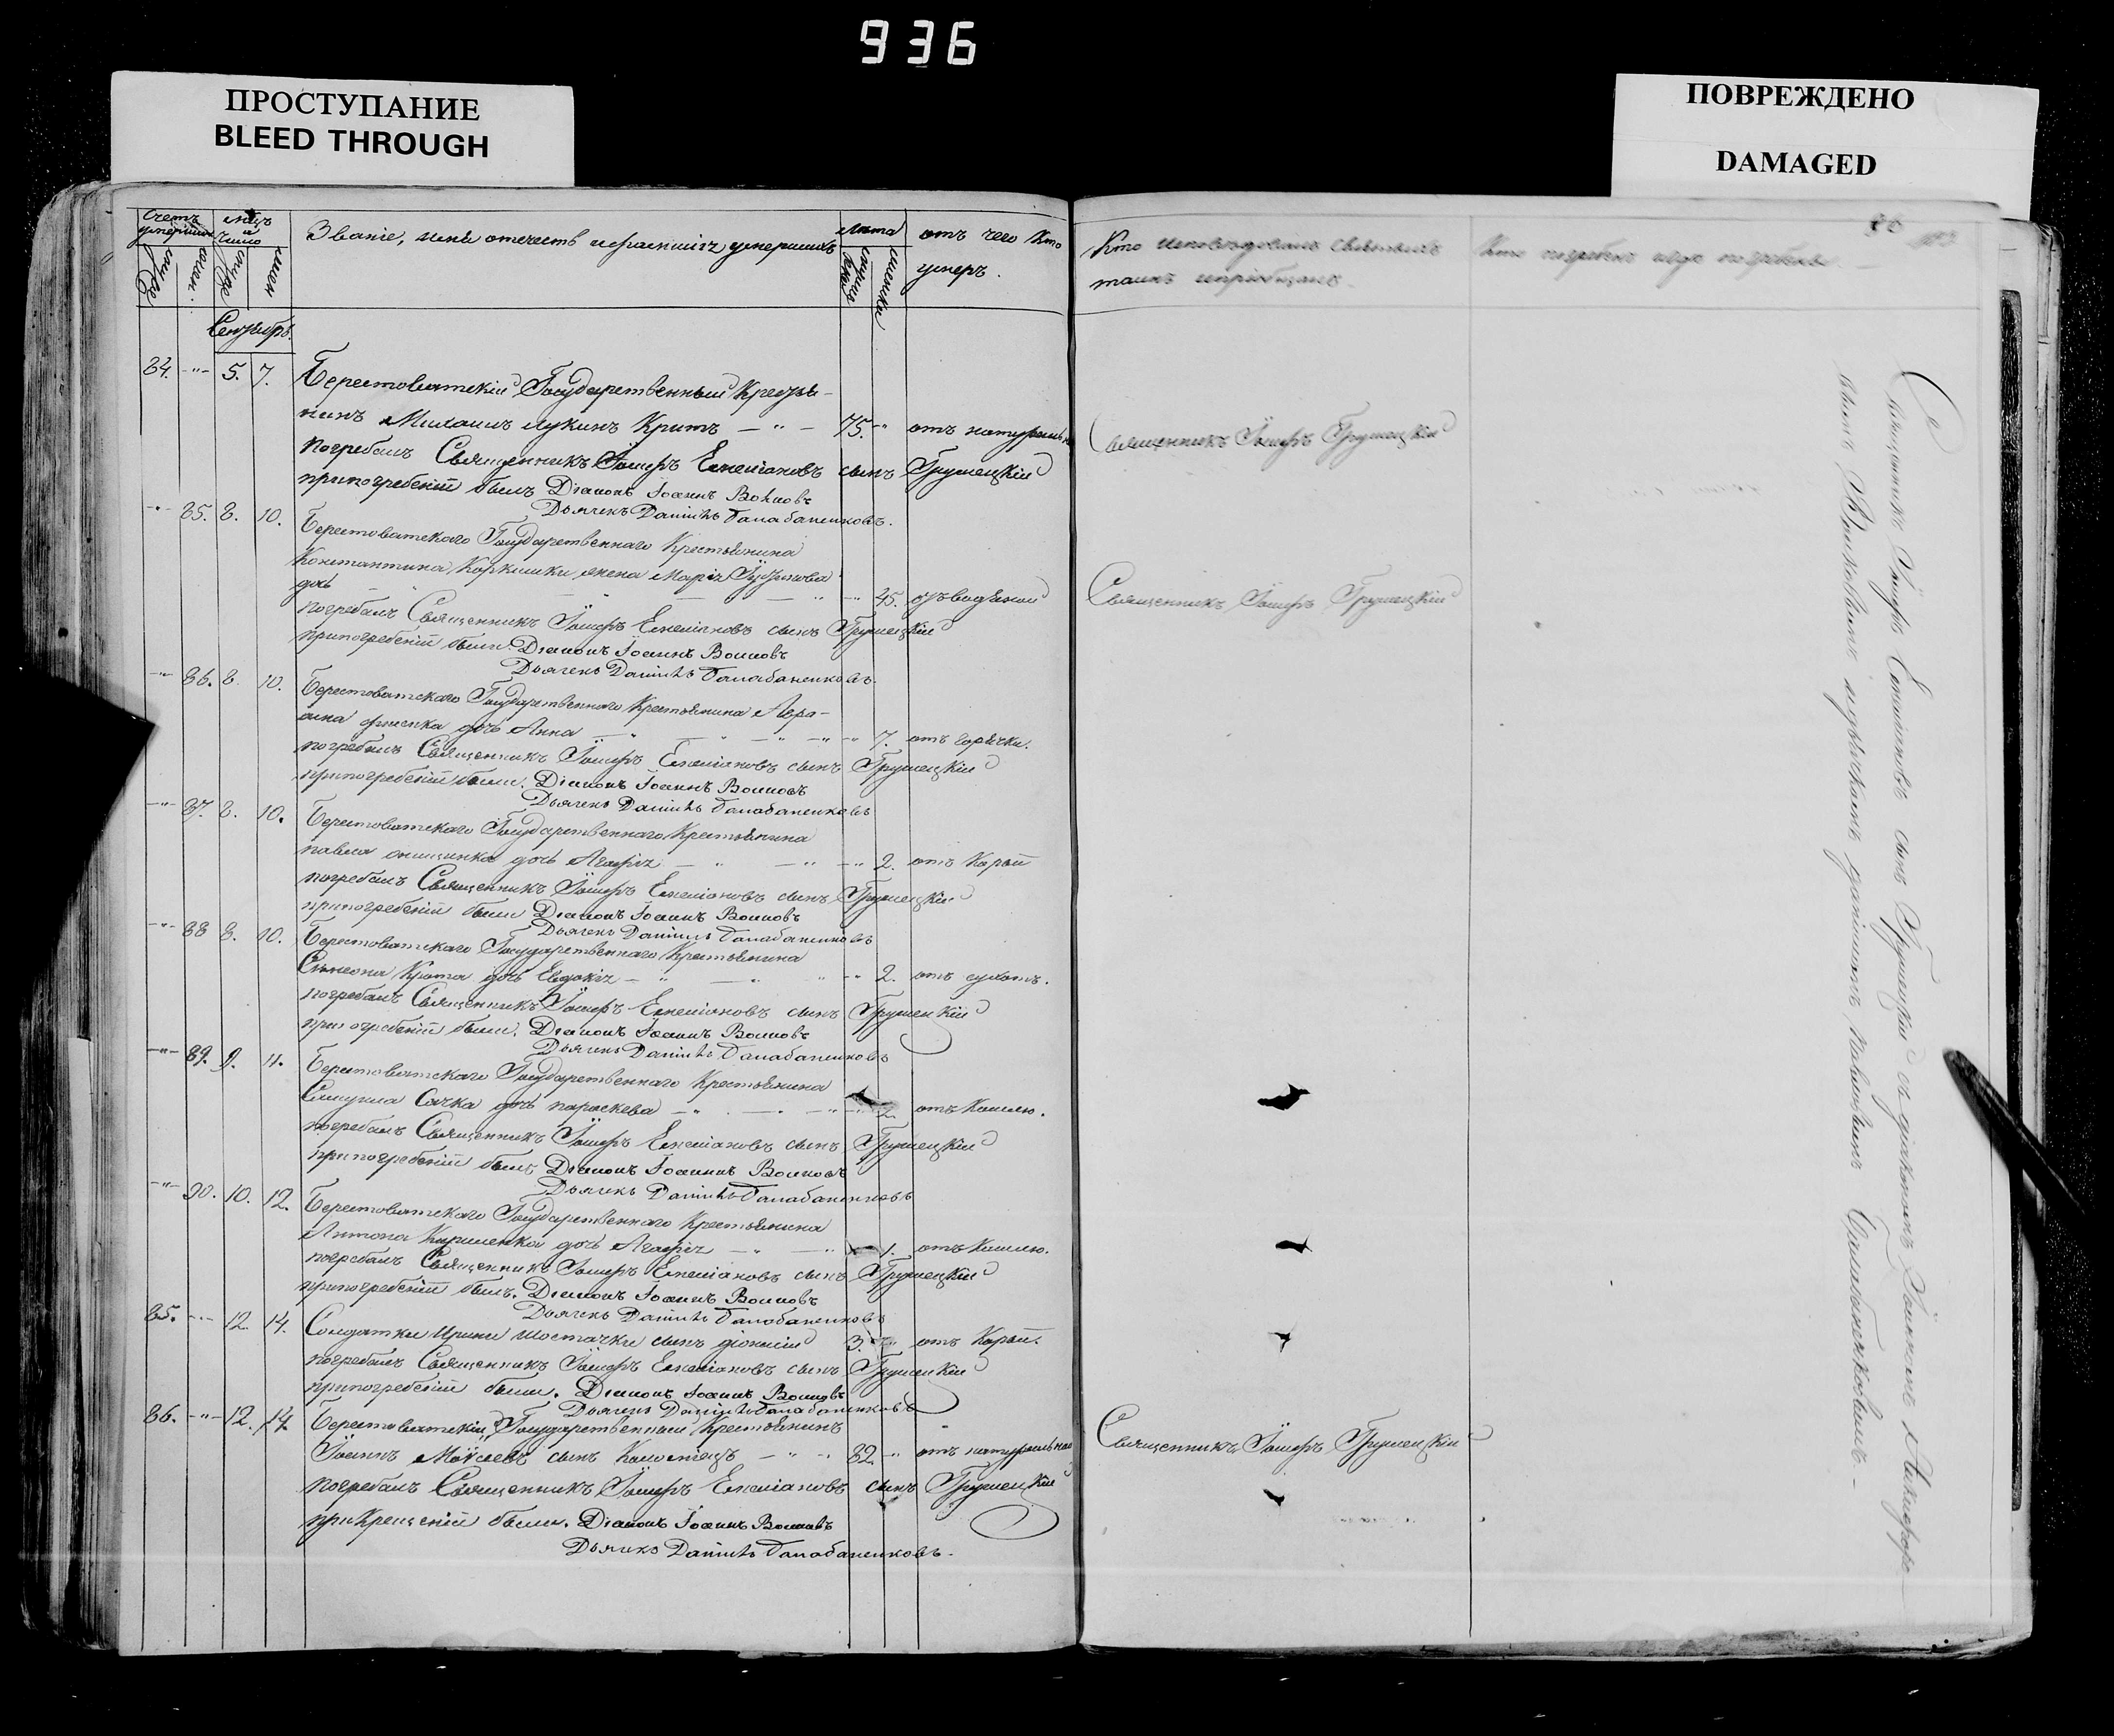 936
ПРОСТУПАНИЕ
BLEED THROUGH
ПОВРЕЖДЕНО
DAMAGED
Счетъ умершихъ
Званіе, имя отчество и фамилія умершихъ
Лѣта
отъ чего кто умеръ.
Кто исповѣдовалъ
Сентябрь.
84. -"- 5. 7. Берестоватскій Государственный Крестья-
нинъ Михаилъ Лукинъ Кратъ - " - 75. " отъ натуральной
погребалъ Священникъ Іосифъ Емеліановъ сынъ Грушецкій
при погребеніи былъ Діаконъ Іоаннъ Волковъ
Дьячекъ Даніилъ Балабаненковъ.
Священникъ Іосифъ Грушецкій
-"- 85. 8. 10. Берестоватскаго Государственнаго Крестьянина
Константина жена Марія
дочь 45. отъ водяной
погребалъ Священникъ Іосифъ Емеліановъ сынъ Грушецкій
при погребеніи были. Діаконъ Іоаннъ Волковъ
Дьячекъ Даніилъ Балабаненковъ.
Священникъ Іосифъ Грушецкій
-"- 86. 8. 10. Берестоватскаго Государственнаго Крестьянина
дочь Анна 7. отъ горячки.
погребалъ Священникъ Іосифъ Емеліановъ сынъ Грушецкій
при погребеніи были. Діаконъ Іоаннъ Волковъ
Дьячекъ Даніилъ Балабаненковъ
-"- 87. 8. 10. Берестоватскаго Государственнаго Крестьянина
павла онищенка дочь Агафія 2. отъ Корый
погребалъ Священникъ Іосифъ Емеліановъ сынъ Грушецкій
при погребеніи были Діаконъ Іоаннъ Волковъ
Дьячекъ Даніилъ Балабаненковъ
-"- 88 8. 10. Берестоватскаго Государственнаго Крестьянина
Симеона Крата дочь Евдокія 2. отъ сухотъ.
погребалъ Священникъ Іосифъ Емеліановъ сынъ Грушецкій
при погребеніи были. Діаконъ Іоаннъ Волковъ
Дьячекъ Даніилъ Балабаненковъ
-"- 89. 9. 11. Берестоватскаго Государственнаго Крестьянина
Самуила Сачка дочь параскева 2. отъ Кашлю.
погребалъ Священникъ Іосифъ Емеліановъ сынъ Грушецкій
при погребеніи былъ Діаконъ Іоаннъ Волковъ
Дьячекъ Даніилъ Балабаненковъ
-"- 90. 10. 12. Берестоватскаго Государственнаго Крестьянина
Антона Кириленка дочь Агафія 1. отъ Кашлю.
погребалъ Священникъ Іосифъ Емеліановъ сынъ Грушецкій
при погребеніи былъ. Діаконъ Іоаннъ Волковъ
Дьячекъ Даніилъ Балабаненковъ
85. -"- 12. 14. Солдатки Ирины Шостачки сынъ діонисій 3. отъ Корый.
погребалъ Священникъ Іосифъ Емеліановъ сынъ Грушецкій
при погребеніи были. Діаконъ Іоаннъ Волковъ
Дьячекъ Даніилъ Балабаненковъ
86. -"- 12. 14. Берестоватскій Государственный Крестьянинъ
Іоаннъ Моѵсеевъ сынъ 82. " отъ натуральной
погребалъ Священникъ Іосифъ Емеліановъ сынъ Грушецкій
при Крещеніи были. Діаконъ Іоаннъ Волковъ
Дьячекъ Даніилъ Балабаненковъ.
Священникъ Іосифъ Грушецкій
Священникъ Іосифъ Емеліановъ сынъ Грушецкій съ діакономъ Іоанномъ
Волковымъ и дьячкомъ Даніиломъ Балабаненковымъ